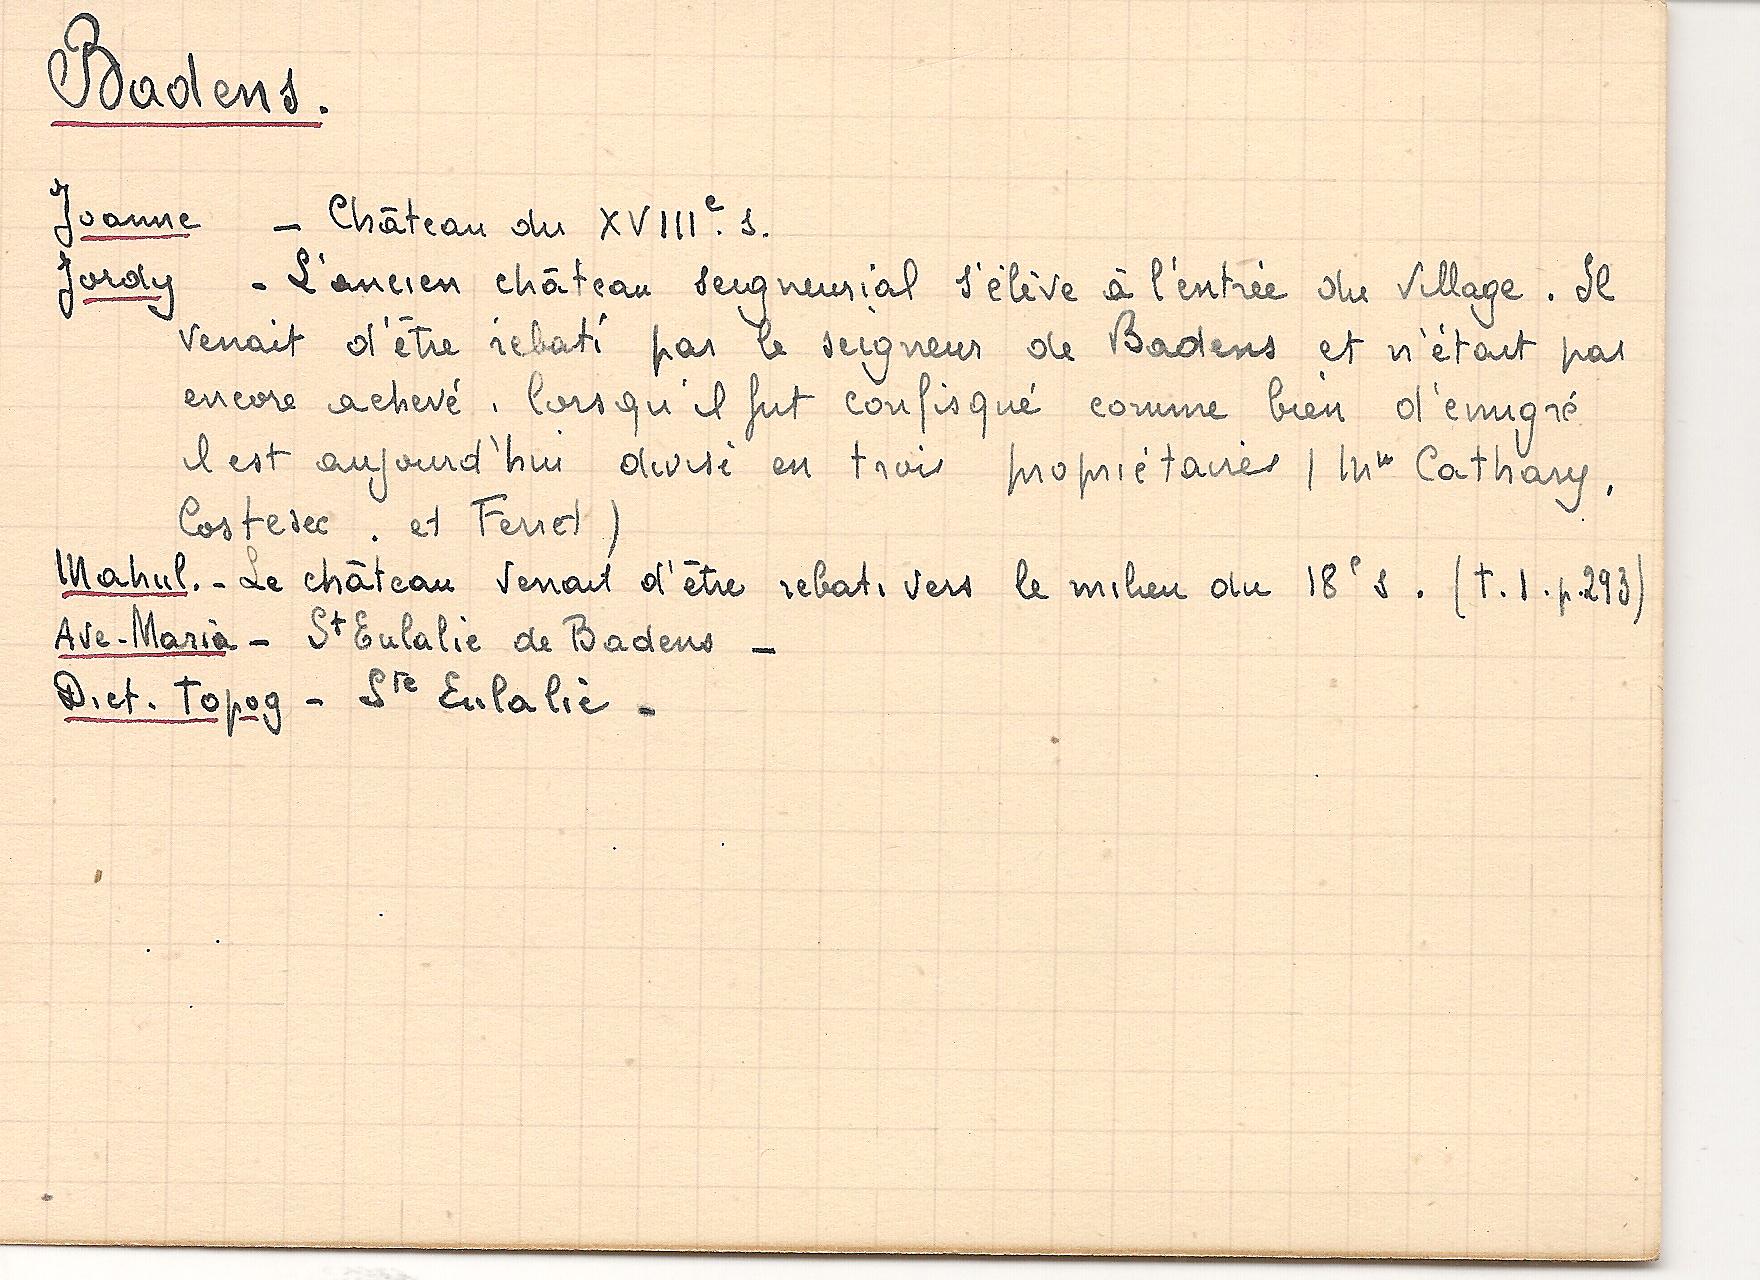 Badens.
Joanne - Château du XVIIIe. s.
Jordy - L'ancien château seigneurial s'élève à l'entrée du village. Il
venait d'être rebati par le seigneur de Badens et n'était pas
encore achevé, lorsqu'il fut confisqué comme bien d'émigré
il est aujourd'hui divisé en trois propriétaires ( Cathary,
et Ferret)
Mahul. - Le château venait d'être rebati vers le milieu du 18e s. (t. 1. p. 293)
Ave-Maria - St Eulalie de Badens -
Dict. Topog - Ste Eulalie -